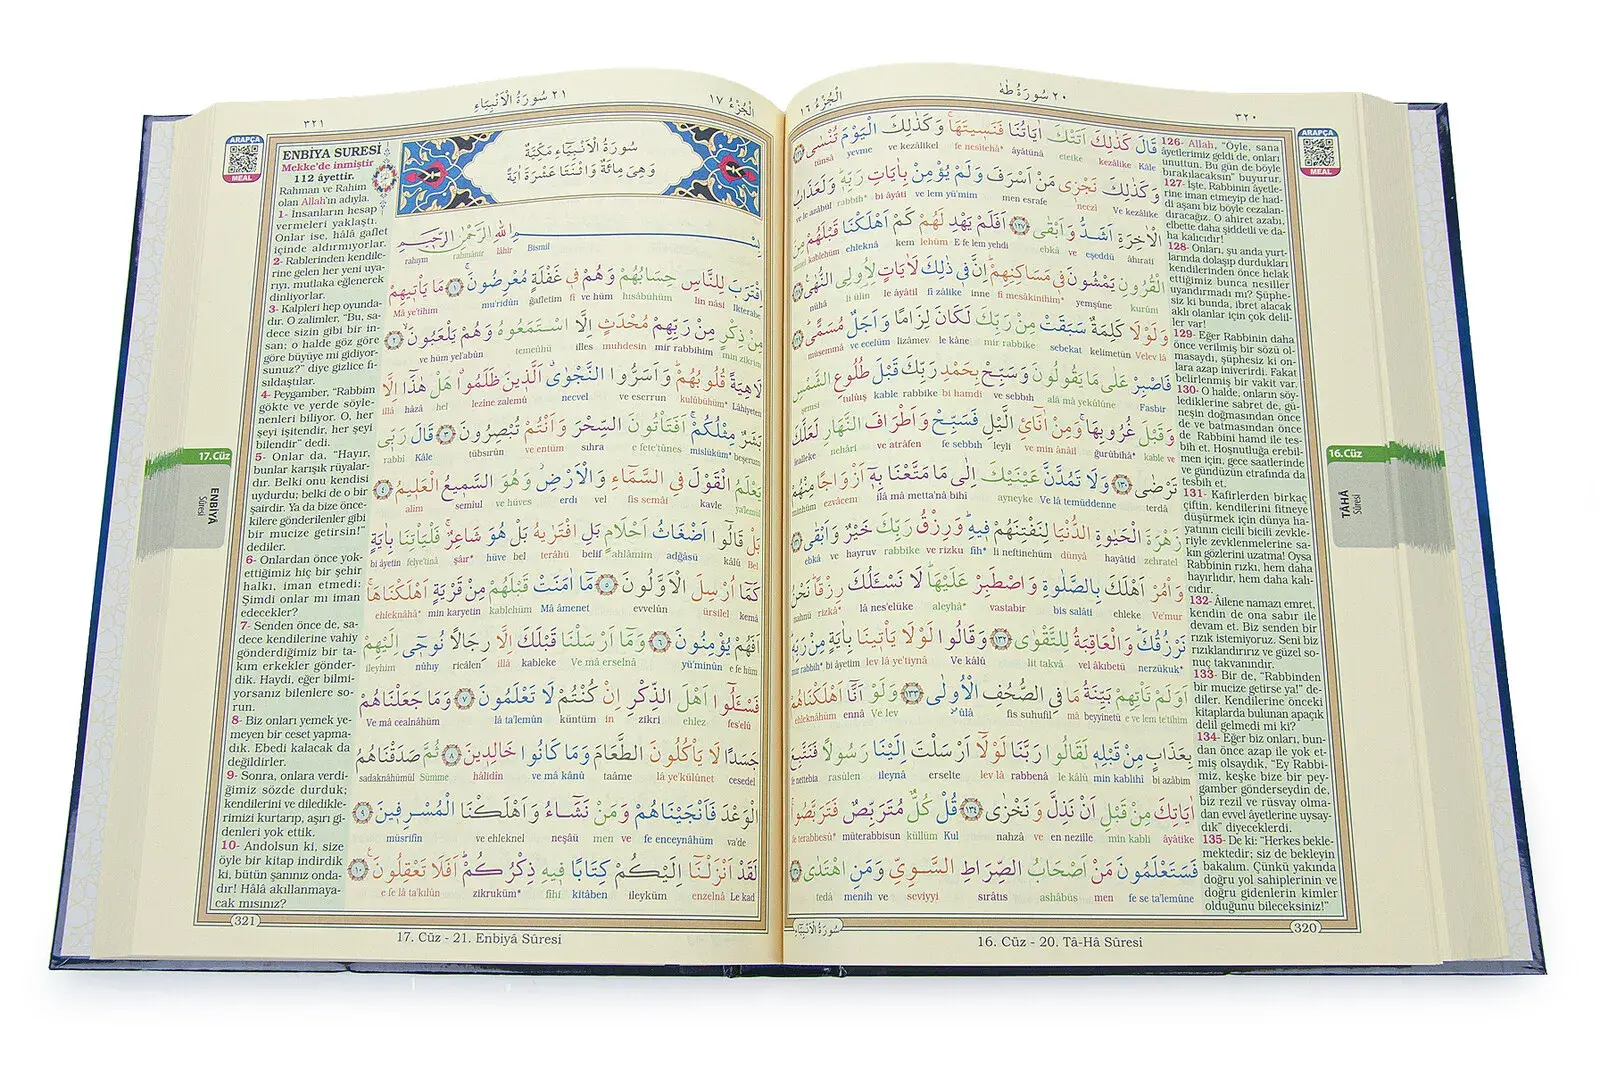 ٢٠ سُورَةُ طٰهٰ
اَلْجُزْءُ ١٦
٣٢٠
ARAPÇA
MEAL
قَالَ كَذٰلِكَ اَتَتْكَ اٰيَاتُنَا فَنَسِيتَهَاۚ وَكَذٰلِكَ الْيَوْمَ تُنْسٰى
tünsâ yevme ve kezâlikel fe nesîtehâ* âyâtünâ etetke kezâlike Kâle
وَكَذٰلِكَ نَجْزٖى مَنْ اَسْرَفَ وَلَمْ يُؤْمِنْ بِاٰيَاتِ رَبِّهٖۜ وَلَعَذَابُ
ve le azâbül rabbih* bi âyâti ve lem yü'min men esrafe neczî Ve kezâlike
الْاٰخِرَةِ اَشَدُّ وَاَبْقٰى ﴿١٢٧﴾ اَفَلَمْ يَهْدِ لَهُمْ كَمْ اَهْلَكْنَا قَبْلَهُمْ مِنَ
minel kablehüm ehleknâ kem lehüm E fe lem yehdi ebkâ ve eşeddü âhırati
الْقُرُونِ يَمْشُونَ فٖى مَسَاكِنِهِمْۜ اِنَّ فٖى ذٰلِكَ لَاٰيَاتٍ لِاُولِى النُّهٰى
nühâ li ülin le âyâtil fî zâlike inne fî mesâkinihim* yemşûne kurûni
وَلَوْلَا كَلِمَةٌ سَبَقَتْ مِنْ رَبِّكَ لَكَانَ لِزَامًا وَاَجَلٌ مُسَمًّى
müsemmâ ve ecelüm lizâmev le kâne mir rabbike sebekat kelimetün Velev lâ
فَاصْبِرْ عَلٰى مَا يَقُولُونَ وَسَبِّحْ بِحَمْدِ رَبِّكَ قَبْلَ طُلُوعِ الشَّمْسِ
şemsi tulûış kable rabbike bi hamdi ve sebbıh alâ mâ yekûlûne Fasbir
وَقَبْلَ غُرُوبِهَاۚ وَمِنْ اٰنَٓائِ الَّيْلِ فَسَبِّحْ وَاَطْرَافَ النَّهَارِ لَعَلَّكَ
lealleke nehâri ve atrâfen fe sebbıh leyli ve min ânâil ğurûbihâ* kable ve
تَرْضٰى ﴿١٣٠﴾ وَلَا تَمُدَّنَّ عَيْنَيْكَ اِلٰى مَا مَتَّعْنَا بِهٖٓ اَزْوَاجًا مِنْهُمْ
minhüm ezvâcem ilâ mâ metta'nâ bihî ayneyke Ve lâ temüddenne terdâ
زَهْرَةَ الْحَيٰوةِ الدُّنْيَا لِنَفْتِنَهُمْ فٖيهِۜ وَرِزْقُ رَبِّكَ خَيْرٌ وَاَبْقٰى
ebkâ ve hayruv rabbike ve rizku fîh* li neftinehüm dünyâ hayâtid zehratel
وَاْمُرْ اَهْلَكَ بِالصَّلٰوةِ وَاصْطَبِرْ عَلَيْهَاۜ لَا نَسْـَٔلُكَ رِزْقًاۜ نَحْنُ
nahnü rizkâ* lâ nes'elüke aleyhâ* vastabir bis salâti ehleke Ve'mur
نَرْزُقُكَۜ وَالْعَاقِبَةُ لِلتَّقْوٰى ﴿١٣٢﴾ وَقَالُوا لَوْلَا يَاْتٖينَا بِاٰيَةٍ مِنْ رَبِّهٖۜ
mir rabbih* bi âyetim lev lâ ye'tiynâ Ve kâlû lit takvâ vel âkıbetü nerzükuk*
اَوَلَمْ تَاْتِهِمْ بَيِّنَةُ مَا فِى الصُّحُفِ الْاُولٰى ﴿١٣٣﴾ وَلَوْ اَنَّٓا اَهْلَكْنَاهُمْ
ehleknâhüm ennâ Ve lev ûlâ fis suhufil mâ beyyinetü e ve lem te'tihim
بِعَذَابٍ مِنْ قَبْلِهٖ لَقَالُوا رَبَّنَا لَوْلَٓا اَرْسَلْتَ اِلَيْنَا رَسُولًا فَنَتَّبِعَ
fe nettebia rasûlen ileynâ erselte lev lâ rabbenâ le kâlû min kablihî bi azâbim
اٰيَاتِكَ مِنْ قَبْلِ اَنْ نَذِلَّ وَنَخْزٰى ﴿١٣٤﴾ قُلْ كُلٌّ مُتَرَبِّصٌ فَتَرَبَّصُوا
fe terabbesû* müterabbisun küllüm Kul nahzâ ve en nezille min kabli âyâtike
فَسَتَعْلَمُونَ مَنْ اَصْحَابُ الصِّرَاطِ السَّوِىِّ وَمَنِ اهْتَدٰى
tedâ menih ve seviyyi sırâtıs ashâbüs men fe se ta'lemûne
126- Allah, “Öyle, sana
âyetlerimiz geldi de, onları
unuttun. Bu gün de böyle
bırakılacaksın” buyurur.
127- İşte, Rabbinin âyetle-
rine iman etmeyip de had-
di aşanı biz böyle cezalan-
dıracağız. O ahiret azabı,
elbette daha şiddetli ve da-
ha kalıcıdır!
128- Onları, şu anda yurt-
larında dolaşıp durdukları
kendilerinden önce helak
ettiğimiz bunca nesiller
uyandırmadı mı? Şüphe-
siz ki bunda, ibret alacak
aklı olanlar için çok delil-
ler var!
129- Eğer Rabbinin daha
önce verilmiş bir sözü ol-
masaydı, şüphesiz ki on-
lara azap iniverirdi. Fakat
belirlenmiş bir vakit var.
130- O halde, onların söy-
lediklerine sabret de, gü-
neşin doğmasından önce
de ve batmasından önce
de Rabbini hamd ile tes-
bih et. Hoşnutluğa erebil-
men için, gece saatlerinde
ve gündüzün etrafında da
tesbih et.
131- Kafirlerden birkaç
çiftin, kendilerini fitneye
düşürmek için dünya ha-
yatının cicili bicili zevkle-
riyle zevklenmelerine sa-
kın gözlerini uzatma! Oysa
Rabbinin rızkı, hem daha
hayırlıdır, hem daha kalı-
cıdır.
132- Âilene namazı emret,
kendin de ona sabır ile
devam et. Biz senden bir
rızık istemiyoruz. Seni biz
rızıklandırırız ve güzel so-
nuç takvanındır.
133- Bir de, “Rabbinden
bir mucize getirse ya!” de-
diler. Kendilerine önceki
kitaplarda bulunan apaçık
delil gelmedi mi ki?
134- Eğer biz onları, bun-
dan önce azap ile yok et-
miş olsaydık, “Ey Rabbi-
miz, keşke bize bir pey-
gamber gönderseydin de,
biz rezil ve rüsvay olma-
dan evvel âyetlerine uysay-
dık” diyeceklerdi.
135- De ki: “Herkes bekle-
mektedir; siz de bekleyin
bakalım. Çünkü yakında
doğru yol sahiplerinin ve
doğru gidenlerin kimler
olduğunu bileceksiniz!”
16.Cüz
TÂHÂ
Sûresi
سُورَةُ الْاَنْبِيَاءِ
320
16. Cüz - 20. Tâ-Hâ Sûresi
٢١ سُورَةُ الْاَنْبِيَاءِ
اَلْجُزْءُ ١٧
٣٢١
ARAPÇA
MEAL
سُورَةُ الْاَنْبِيَاءِ مَكِّيَّةٌ
وَهِىَ مِائَةٌ وَاثْنَتَا عَشْرَةَ اٰيَةً
بِسْمِ اللّٰهِ الرَّحْمٰنِ الرَّحٖيمِ
rahıym rahmânir lâhir Bismil
اِقْتَرَبَ لِلنَّاسِ حِسَابُهُمْ وَهُمْ فٖى غَفْلَةٍ مُعْرِضُونَۚ ﴿١﴾ مَا يَاْتٖيهِمْ
Mâ ye'tîhim mu'ridûn ğafletim fî ve hüm hısâbühüm lin nâsi Ikterabe
مِنْ ذِكْرٍ مِنْ رَبِّهِمْ مُحْدَثٍ اِلَّا اسْتَمَعُوهُ وَهُمْ يَلْعَبُونَۙ ﴿٢﴾
ve hüm yel'abûn temeûhü illes muhdesin mir rabbihim min zikrim
لَاهِيَةً قُلُوبُهُمْۜ وَاَسَرُّوا النَّجْوٰىۗ اَلَّذٖينَ ظَلَمُواۗ هَلْ هٰذَٓا اِلَّا
illâ hâzâ hel lezîne zalemû necvel ve eserrun kulûbühüm* Lâhiyeten
بَشَرٌ مِثْلُكُمْۚ اَفَتَاْتُونَ السِّحْرَ وَاَنْتُمْ تُبْصِرُونَ ﴿٣﴾ قَالَ رَبّٖى
rabbî Kâle tübsırûn ve entüm sihra e fete'tûnes mislüküm* beşerum
يَعْلَمُ الْقَوْلَ فِى السَّمَٓاءِ وَالْاَرْضِۘ وَهُوَ السَّمٖيعُ الْعَلٖيمُ ﴿٤﴾
alîm semîul ve hüves erdı vel fis semâi kavle ya'lemül
بَلْ قَالُٓوا اَضْغَاثُ اَحْلَامٍ بَلِ افْتَرٰيهُ بَلْ هُوَ شَاعِرٌۚ فَلْيَاْتِنَا بِاٰيَةٍ
bi âyetin felye'tinâ şâır* hüve bel terâhü belif ahlâmin adğâsü kâlû Bel
كَمَٓا اُرْسِلَ الْاَوَّلُونَ ﴿٥﴾ مَٓا اٰمَنَتْ قَبْلَهُمْ مِنْ قَرْيَةٍ اَهْلَكْنَاهَاۚ
ehleknâhâ* min karyetin kablehüm Mâ âmenet evvelûn ürsilel kemâ
اَفَهُمْ يُؤْمِنُونَ ﴿٦﴾ وَمَٓا اَرْسَلْنَا قَبْلَكَ اِلَّا رِجَالًا نُوحٖٓى اِلَيْهِمْ
ileyhim nûhıy ricâlen illâ kableke Ve mâ erselnâ yü'minûn e fe hüm
فَسْـَٔلُٓوا اَهْلَ الذِّكْرِ اِنْ كُنْتُمْ لَا تَعْلَمُونَ ﴿٧﴾ وَمَا جَعَلْنَاهُمْ
Ve mâ cealnâhüm lâ ta'lemûn küntüm in zikri ehlez fes'elû
جَسَدًا لَا يَاْكُلُونَ الطَّعَامَ وَمَا كَانُوا خَالِدٖينَ ﴿٨﴾ ثُمَّ صَدَقْنَاهُمُ
sadaknâhümül Sümme hâlidîn ve mâ kânû taâme lâ ye'külûnet cesedel
الْوَعْدَ فَاَنْجَيْنَاهُمْ وَمَنْ نَشَٓاءُ وَاَهْلَكْنَا الْمُسْرِفٖينَ ﴿٩﴾
müsrifîn ve ehleknel neşâü men ve fe enceynâhüm va'de
لَقَدْ اَنْزَلْنَٓا اِلَيْكُمْ كِتَابًا فٖيهِ ذِكْرُكُمْۜ اَفَلَا تَعْقِلُونَ۟ ﴿١٠﴾
e fe lâ ta'kılûn zikruküm* fîhi kitâben ileyküm enzelnâ Le kad
ENBİYA SURESİ
Mekke'de inmiştir
112 âyettir.
Rahman ve Rahîm
olan Allah'ın adıyla.
1- İnsanların hesap
vermeleri yaklaştı.
Onlar ise, hâlâ gaflet
içinde aldırmıyorlar.
2- Rablerinden kendile-
rine gelen her yeni uya-
rıyı, mutlaka eğlenerek
dinliyorlar.
3- Kalpleri hep oyunda-
dır. O zalimler, “Bu, sa-
dece sizin gibi bir in-
san; o halde göz göre
göre büyüye mi gidiyor-
sunuz?” diye gizlice fı-
sıldaştılar.
4- Peygamber, “Rabbim
gökte ve yerde söyle-
nenleri biliyor. O, her
şeyi işitendir, her şeyi
bilendir” dedi.
5- Onlar da, “Hayır,
bunlar karışık rüyalar-
dır. Belki onu kendisi
uydurdu; belki de o bir
şairdir. Ya da bize önce-
kilere gönderilenler gibi
bir mucize getirsin!”
dediler.
6- Onlardan önce yok
ettiğimiz hiç bir şehir
halkı, iman etmedi:
Şimdi onlar mı iman
edecekler?
7- Senden önce de, sa-
dece kendilerine vahiy
gönderdiğimiz bir ta-
kım erkekler gönder-
dik. Haydi, eğer bilmi-
yorsanız bilenlere so-
run.
8- Biz onları yemek ye-
meyen bir ceset yapma-
dık. Ebedi kalacak da
değildirler.
9- Sonra, onlara verdi-
ğimiz sözde durduk;
kendilerini ve diledikle-
rimizi kurtarıp, aşırı gi-
denleri yok ettik.
10- Andolsun ki, size
öyle bir kitap indirdik
ki, bütün şanınız onda-
dır! Hâlâ akıllanmaya-
cak mısınız?
17.Cüz
ENBİYÂ
Sûresi
321
17. Cüz - 21. Enbiyâ Sûresi